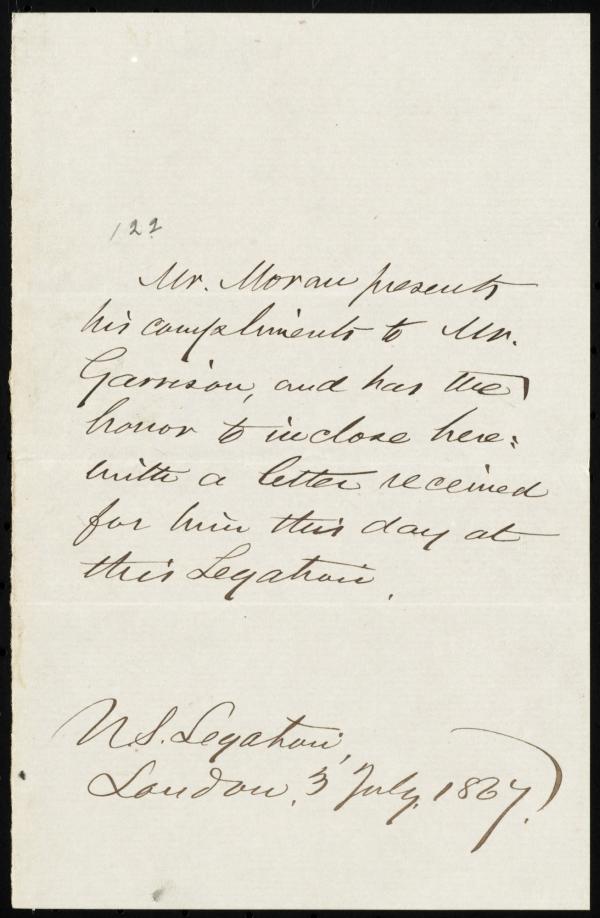 122
Mr. Moran presents
his compliments to Mr.
Garrison, and has the
honor to inclose here:
with a letter received
for him this day at
this Legation.
U.S. Legation,
London, 3 July, 1867.